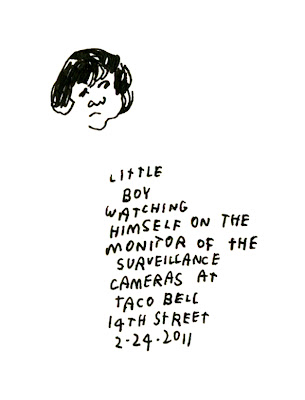 LITTLE
BOY
WATCHING
HIMSELF ON THE
MONITOR OF THE
SURVEILLANCE
CAMERAS AT
TACO BELL
14TH STREET
2-24-2011